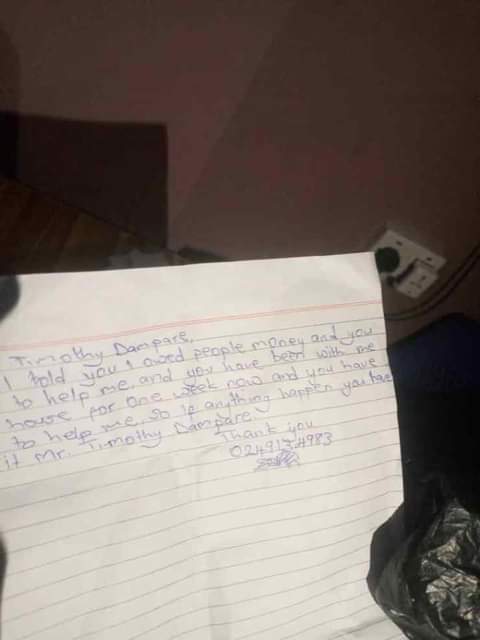 Timothy Dampare,
I told you I owed people money and you
to help me, and you have been with me
house for one week now and you have
to help me, so if anything happen you have
it Mr. Timothy Dampare
Thank you